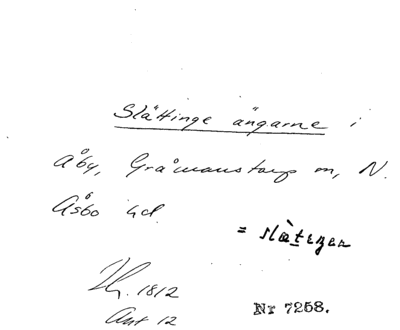 Slättinge ängarne i
Åby, Gråmanstorps m, N.
Åsbo hd.
= slàtezen
1812
Ant 12
Nr 7258.